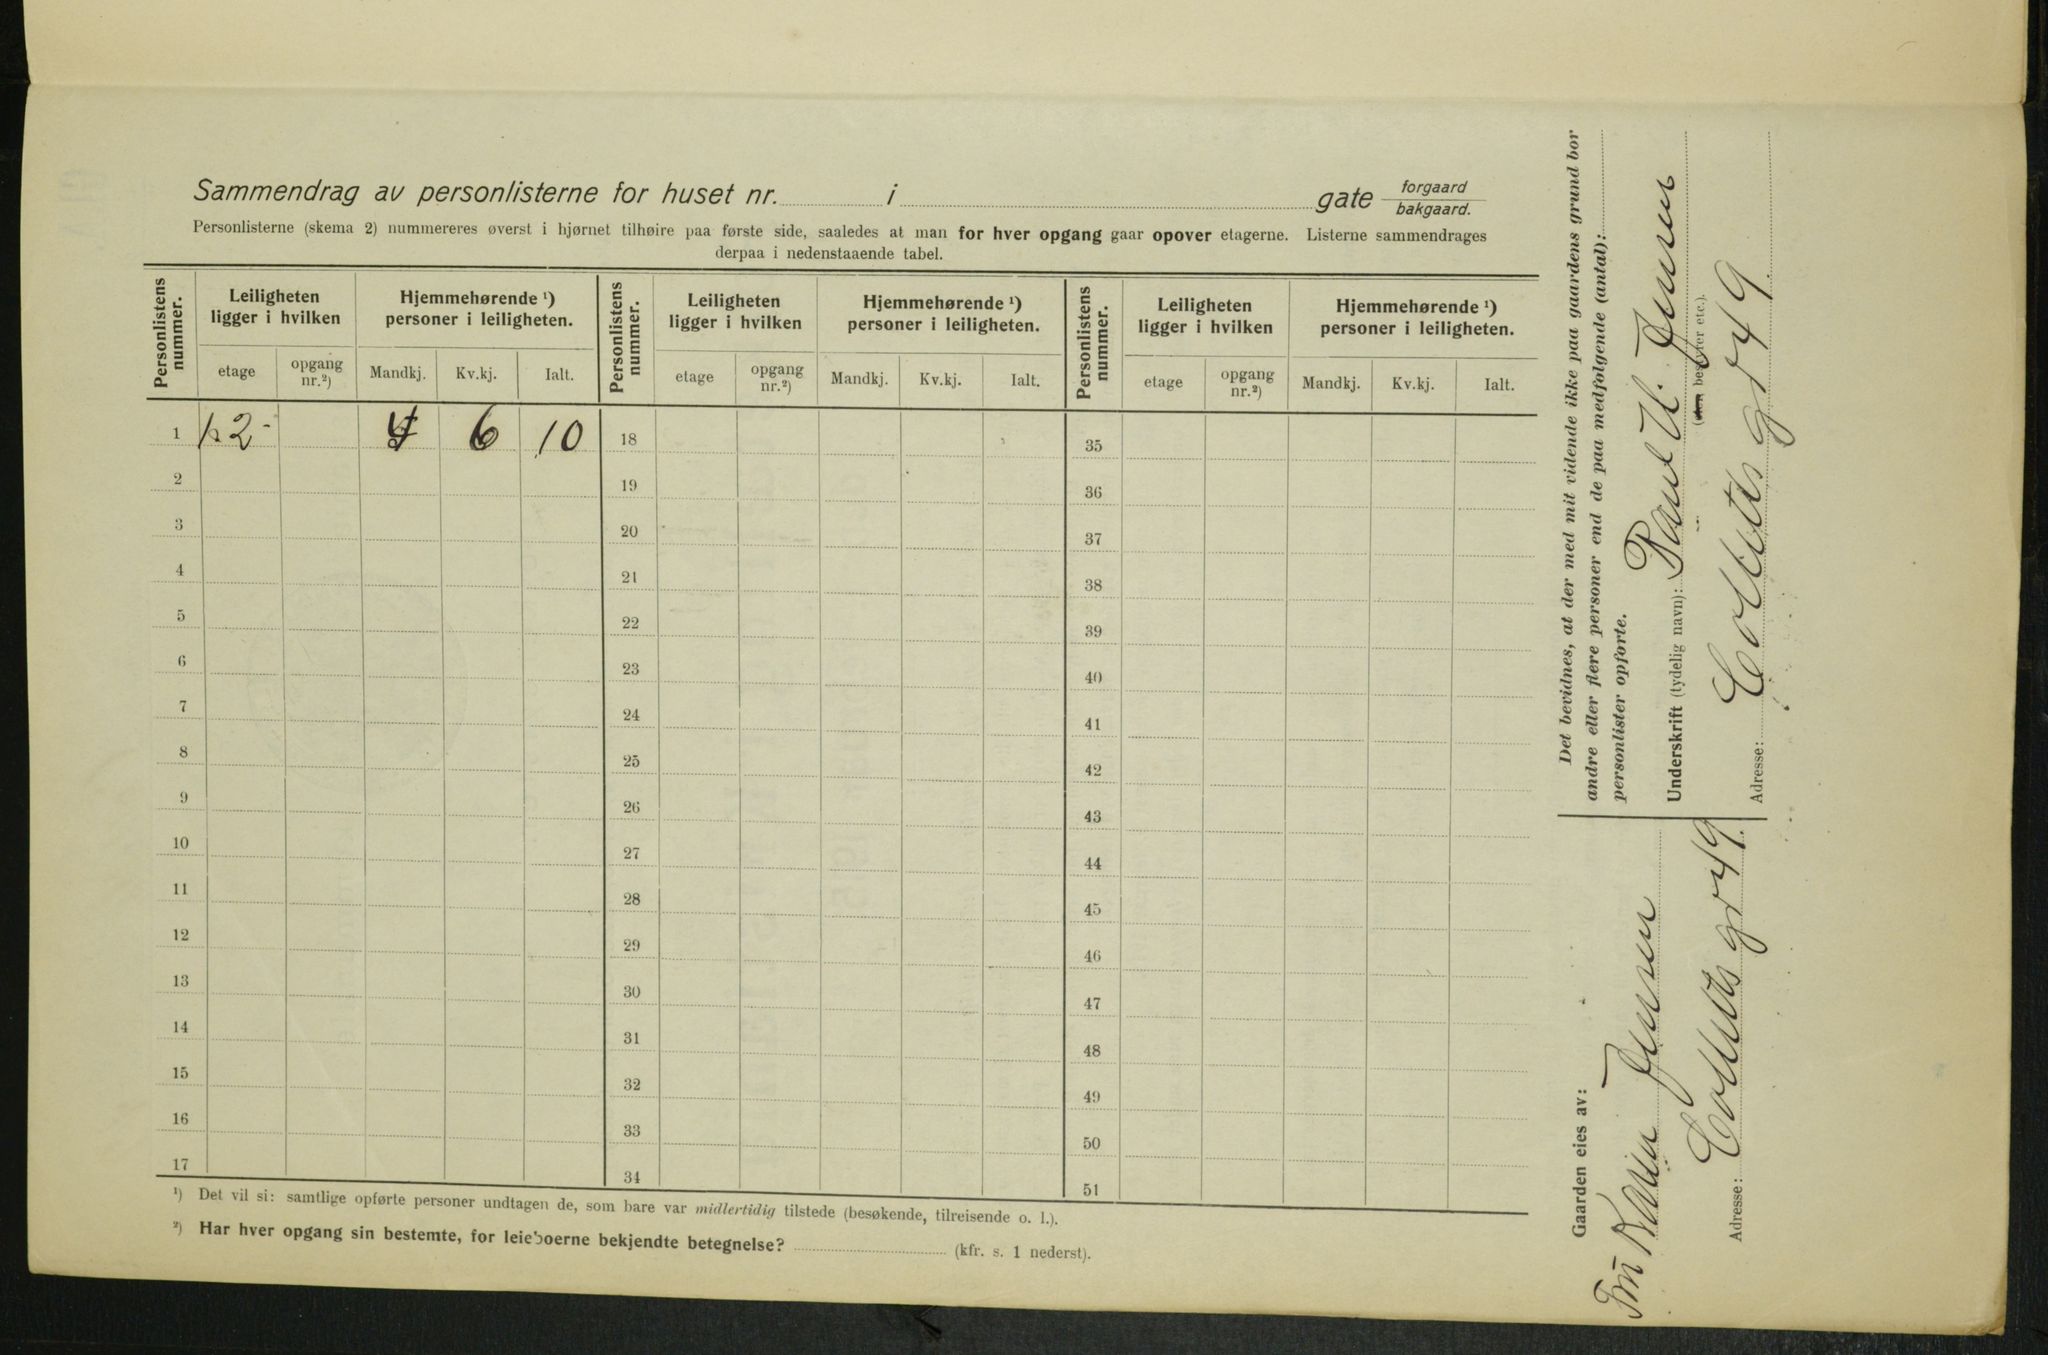 Sammendrag av personlisterne for huset nr. i gate forgaard
bakgaard.
Personlisterne (skema 2) nummereres øverst i hjørnet tilhøire paa første side, saaledes at man for hver opgang gaar opover etagerne. Listerne sammendrages
derpaa i nedenstaaende tabel.
Personlistens nummer. Leiligheten ligger i hvilken Hjemmehørende ¹) personer i leiligheten. Personlistens nummer. Leiligheten ligger i hvilken Hjemmehørende ¹) personer i leiligheten. Personlistens nummer. Leiligheten ligger i hvilken Hjemmehørende ¹) personer i leiligheten.
etage opgang nr.²) Mandkj. Kv.kj. Ialt. etage opgang nr.²) Mandkj. Kv.kj. Ialt. etage opgang nr.²) Mandkj. Kv.kj. Ialt.
1 4 6 10 18 35
2 19 36
3 20 37
4 21 38
5 22 39
6 23 40
7 24 41
8 25 42
9 26 43
10 27 44
11 28 45
12 29 46
13 30 47
14 31 48
15 32 49
16 33 50
17 34 51
¹) Det vil si: samtlige opførte personer undtagen de, som bare var midlertidig tilstede (besøkende, tilreisende o. l.).
²) Har hver opgang sin bestemte, for leieboerne bekjendte betegnelse? (kfr. s. 1 nederst).
Gaarden eies av:
Karen Jensen
Adresse: Colletts gt 49.
Det bevidnes, at der med mit vidende ikke paa gaardens grund bor
andre eller flere personer end de paa medfølgende (antal):
personlister opførte.
Underskrift (tydelig navn): Paul H. Jensen
bestyrer etc.).
Adresse: Colletts gt 49.